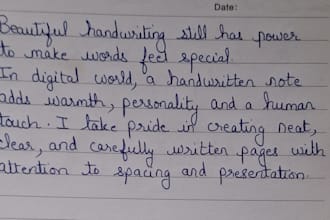 Date:
Beautiful handwriting still has power
to make words feel special.
In digital world, a handwritten note
adds warmth, personality and a human
touch. I take pride in creating neat,
clear, and carefully written pages with
attention to spacing and presentation.